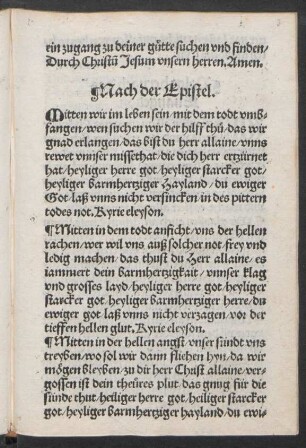 ein zugang zu deiner gůtte suchen vnd finden/
Durch Christũ Jesum vnsern herren. Amen.
¶Nach der Epistel.
Mitten wir im leben sein/ mit dem todt vmb-
fangen/ wen suchen wir der hilff thů/ das wir
gnad erlangen/ das bist du herr allaine/ vnns
rewet vnnser missethat/ die dich herr ertzürnet
hat/ heyliger herre got/ heyliger starcker got/
heyliger barmhertziger Hayland/ du ewiger
Got/ laß vnns nicht versincken/ in des pittern
todes not. Kyrie eleyson.
¶Mitten in dem todt anficht/ vns der hellen
rachen/ wer wil vns auß solcher not/ frey vnd
ledig machen/ das thust du Herr allaine/ es
iammert dein barmhertzigkait/ vnnser klag
vnd grosses layd/ heyliger herre got/ heyliger
starcker got/ heyliger barmhertziger herre/ du
ewiger got/ laß vnns nicht verzagen/ vor der
tieffen hellen glut. Kyrie eleyson.
¶Mitten in der hellen angst/ vnser sünd vns
treyben/ wo sol wir dann fliehen hyn/ da wir
mögen bleyben/ zu dir herr Christ allaine/ ver-
gossen ist dein theüres plut/ das gnug für die
sünde thut/ heiliger herre got/ heiliger starcker
got/ heyliger barmhertziger hayland/ du ewi-